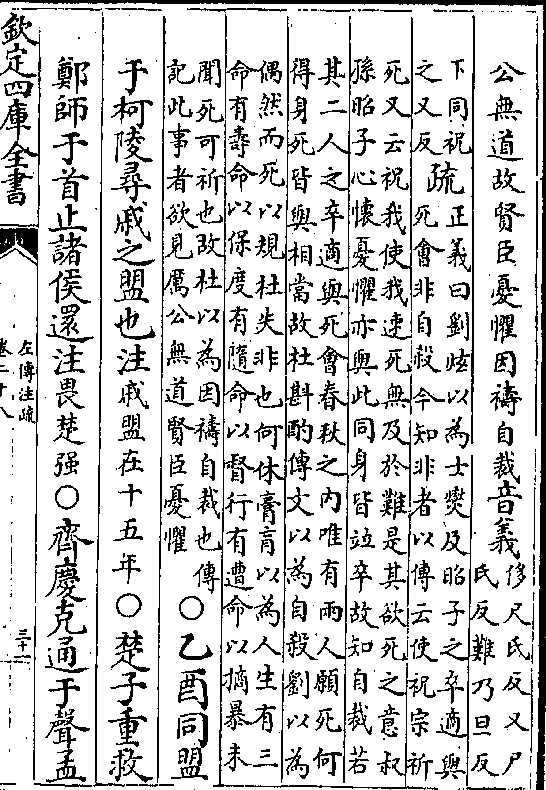 公無道故賢臣憂懼因禱自裁音義侈尺氏反又尸
氏反難乃旦反
下同祝
之又反
疏正義曰劉炫以為士燮及昭子之卒適與
死會非自殺今知非者以傳云使祝宗祈
死又云祝我使我速死無及於難是其欲死之意叔
孫昭子心懷憂懼亦與此同身皆竝卒故知自裁若
其二人之卒適與死會春秋之内唯有兩人願死何
得身死皆與相當故杜斟酌傳文以為自殺劉以為
偶然而死以規杜失非也何休膏肓以為人生有三
命有壽命以保度有隨命以督行有遭命以摘暴未
聞死可祈也故杜以為因禱自裁也傳
記此事者欲見厲公無道賢臣憂懼
○乙酉同盟
于柯陵尋戚之盟也注戚盟在十五年○楚子重救
鄭師于首止諸侯還注畏楚强○齊慶克通于聲孟
欽定四庫全書
左傳注疏
卷二十八